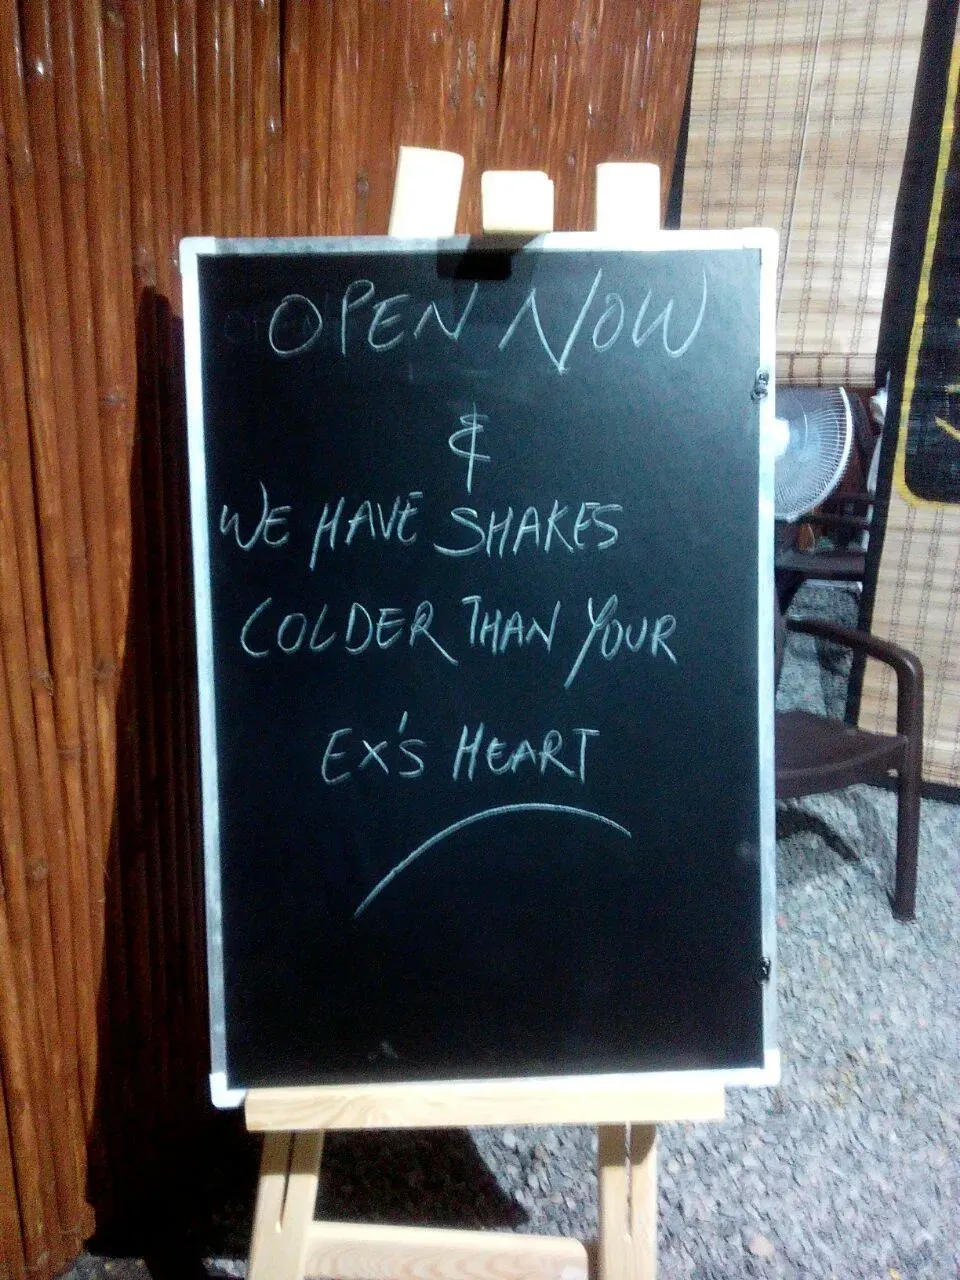 OPEN NOW
&
WE HAVE SHAKES
COLDER THAN YOUR
EX'S HEART